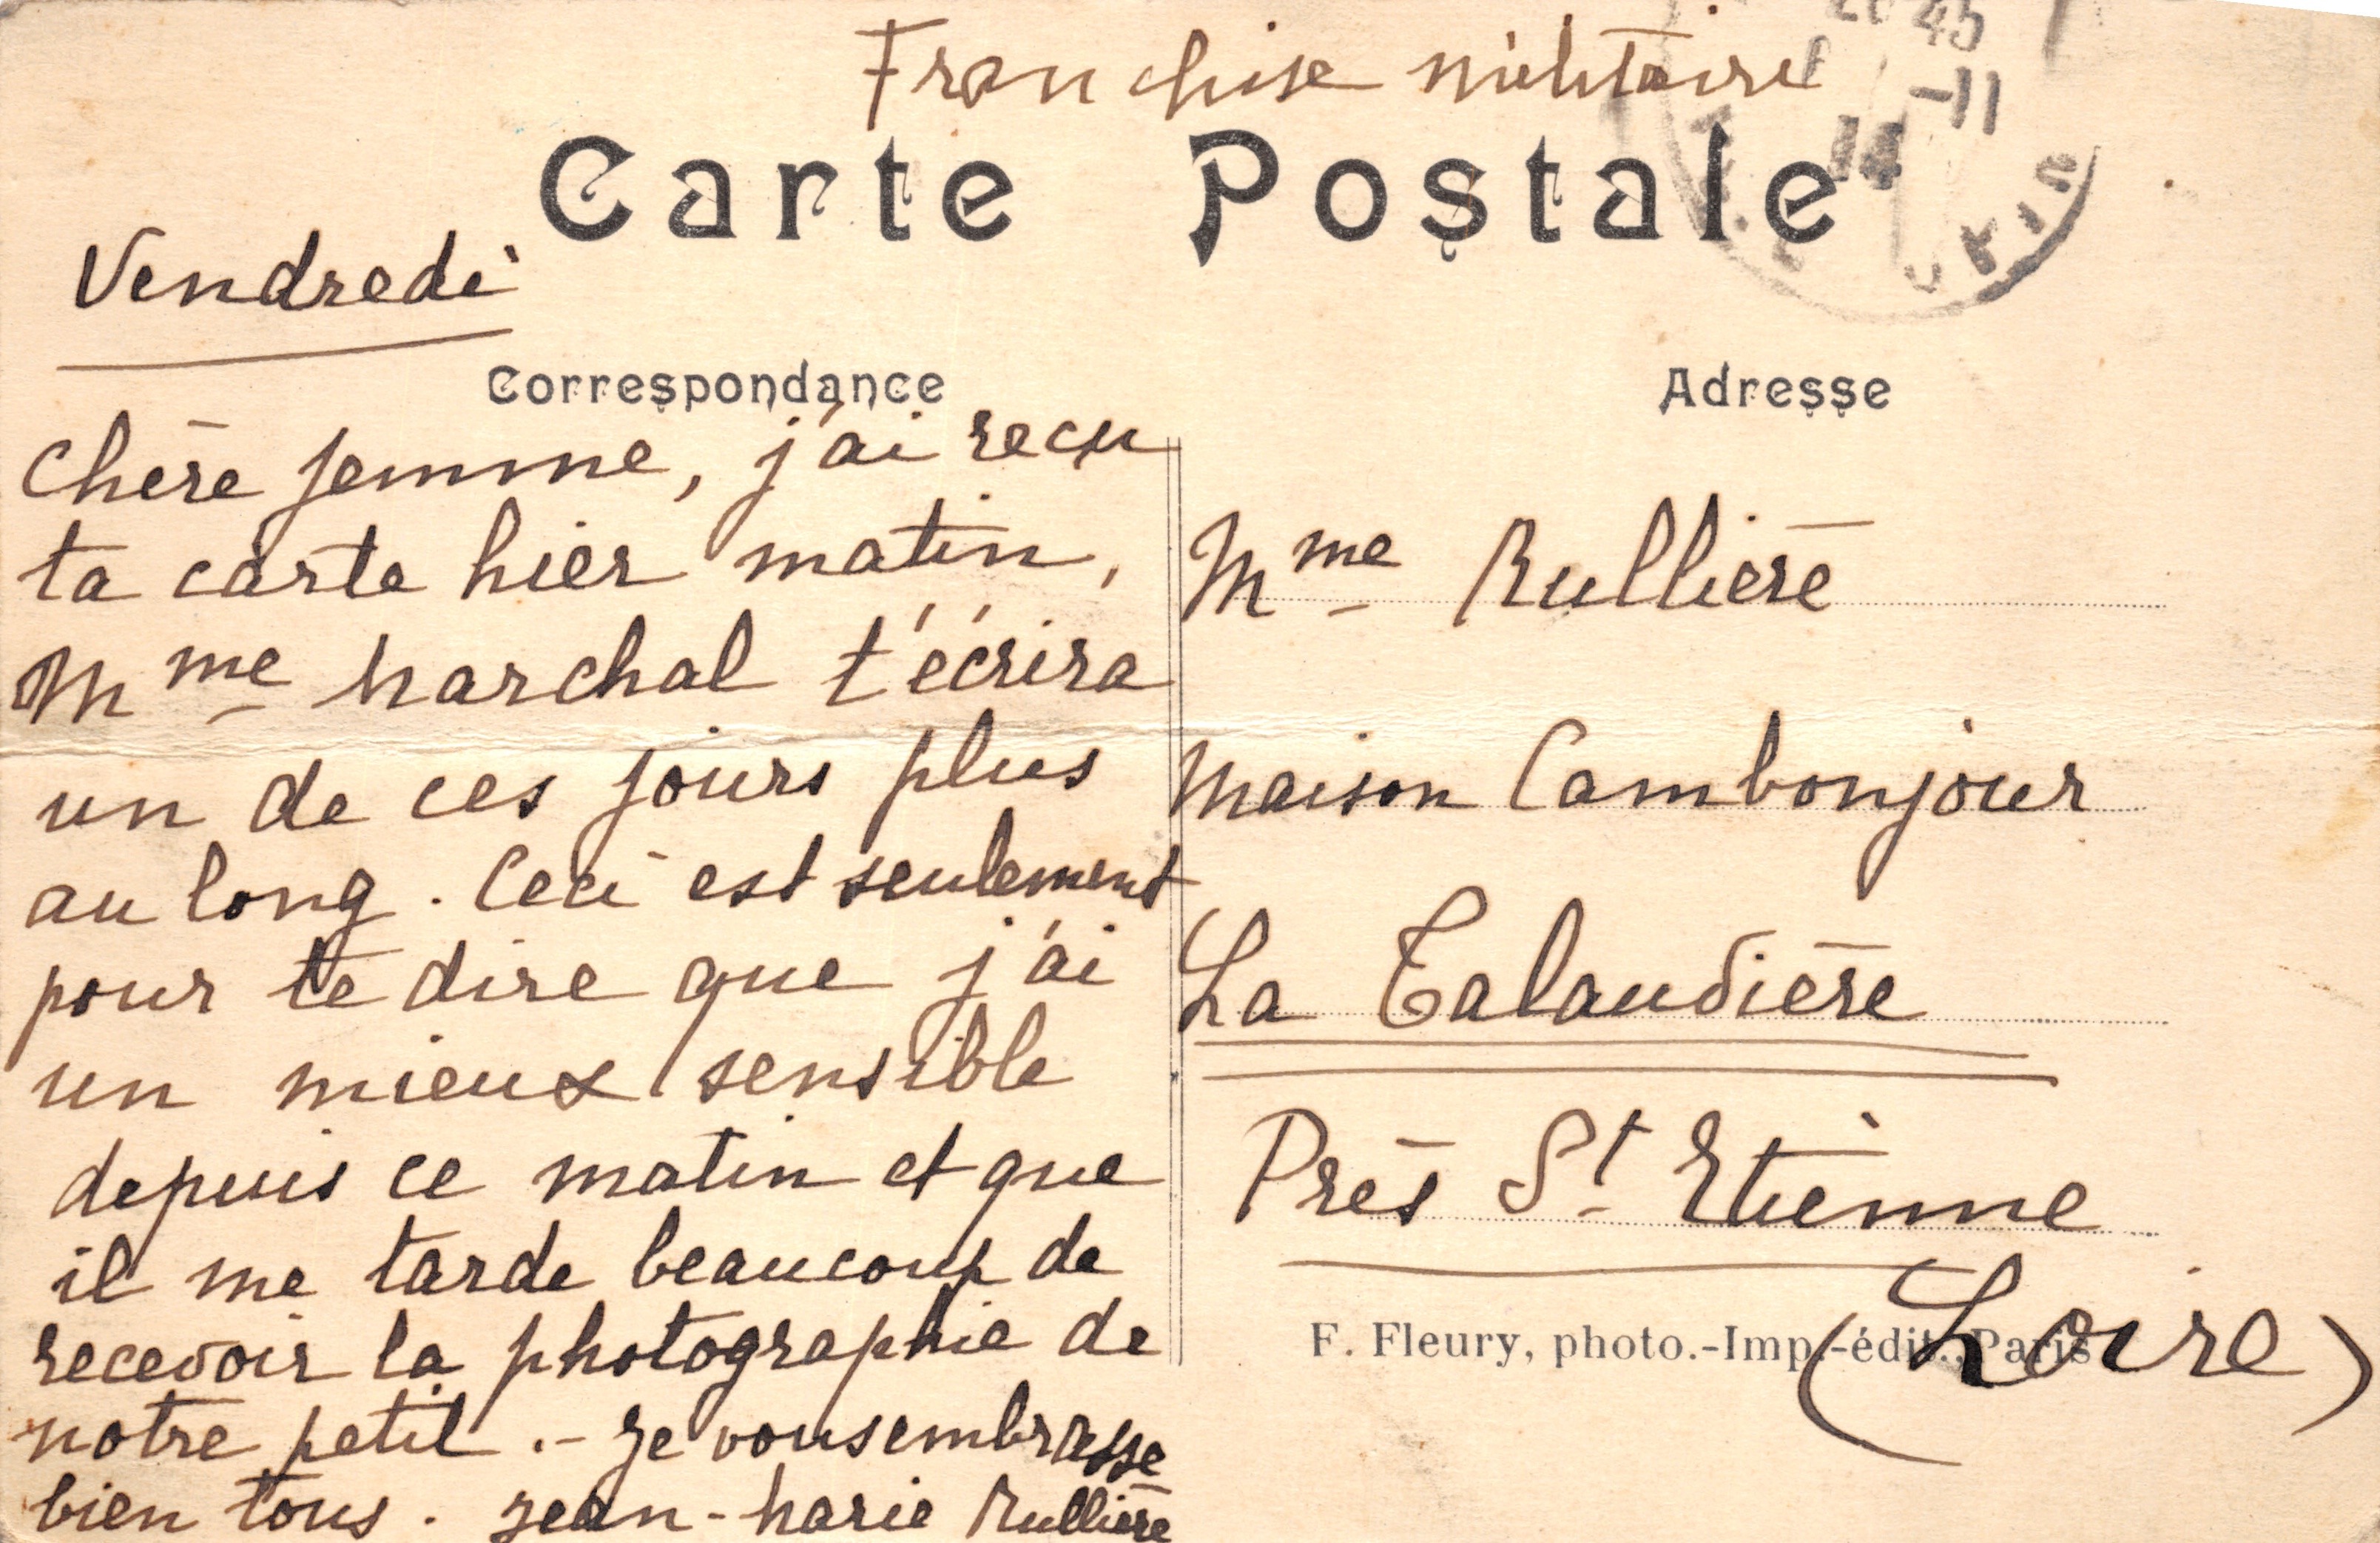 Franchise militaire
20 45
-11
14
Carte Postale
Vendredi
Correspondance
Chère femme, j'ai reçu
ta carte hier matin,
Mme Marchal t'écrira
un de ces jours plus
au long. Ceci est seulement
pour te dire que j'ai
un mieux sensible
depuis ce matin et que
il me tarde beaucoup de
recevoir la photographie de
notre petit.- Je vous embrasse
bien tous. Jean-Marie Rullière
Adresse
Mme Rullière
Maison Cambonjour
La Talaudière
Près St Etienne
(Loire)
F. Fleury, photo.-Imp.-édit., Paris